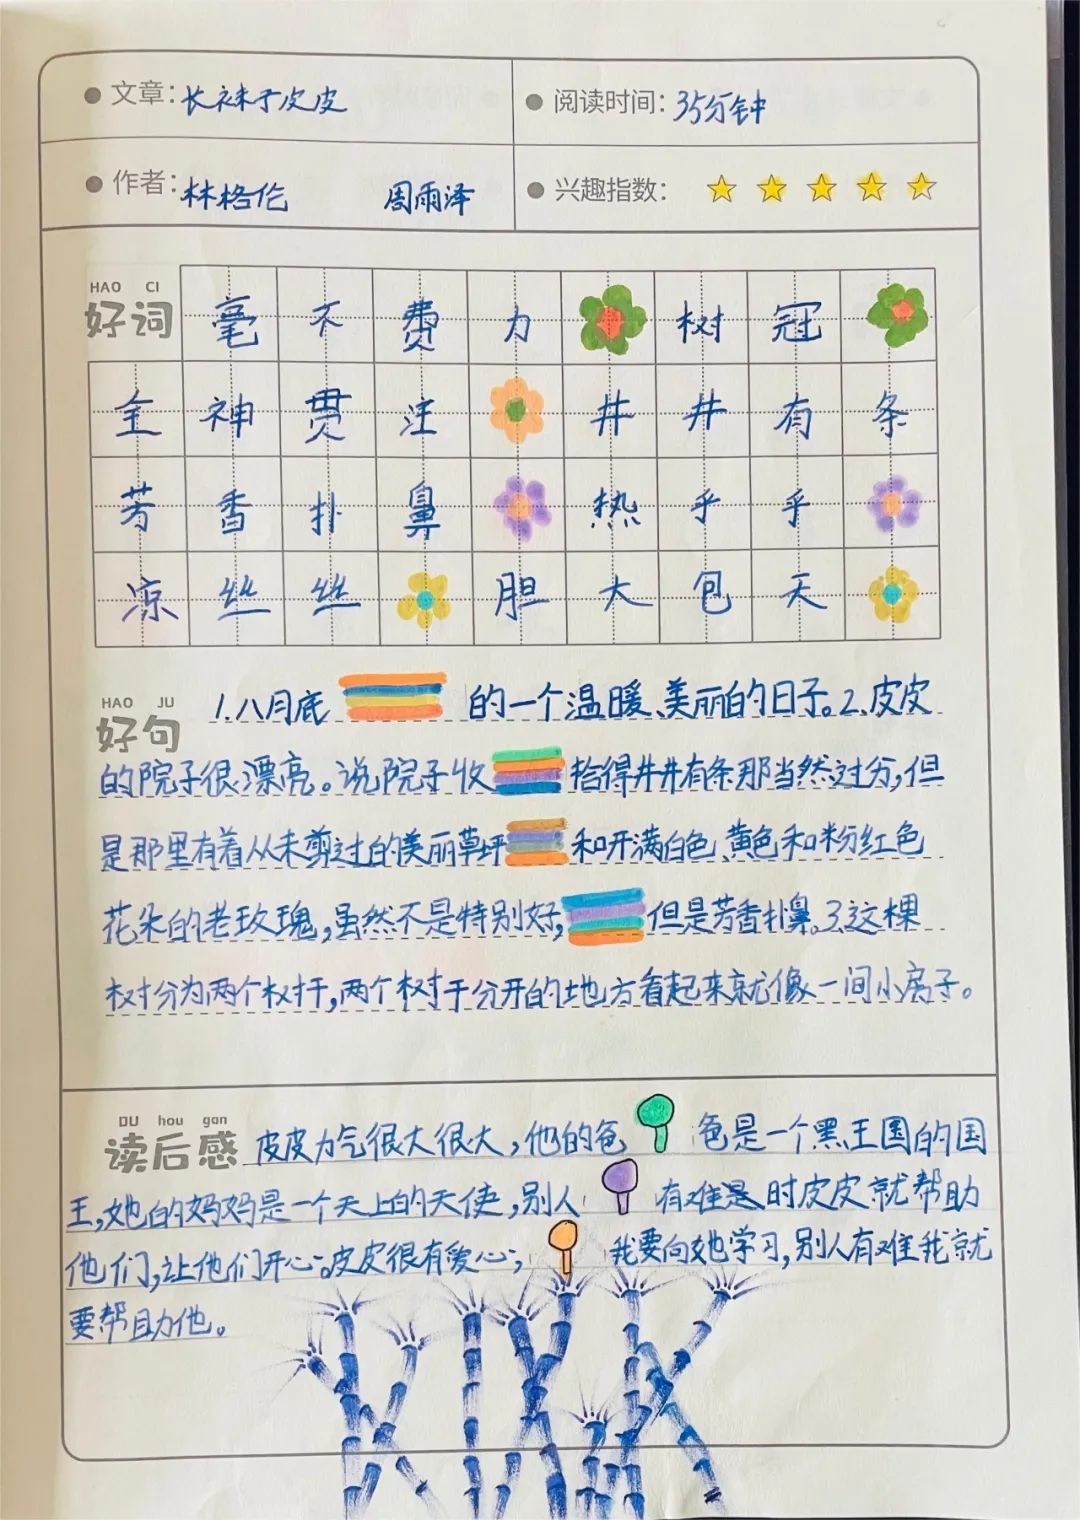 文章：长袜子皮皮
阅读时间：35分钟
作者：林格伦 周雨泽
兴趣指数：
HAO CI
好词 毫不费力 树冠
全神贯注 井井有条
芳香扑鼻 热乎乎
凉丝丝 胆大包天
HAO JU
好句 1.八月底 的一个温暖、美丽的日子。2.皮皮
的院子很漂亮。说院子收 拾得井井有条那当然过分,但
是那里有着从未剪过的美丽草坪 和开满白色、黄色和粉红色
花朵的老玫瑰,虽然不是特别好, 但是芳香扑鼻。3.这棵
树分为两个树干,两个树干分开的地方看起来就像一间小房子。
DU hou gan
读后感 皮皮力气很大很大,他的爸 爸是一个黑王国的国
王,她的妈妈是一个天上的天使,别人 有难是时皮皮就帮助
他们,让他们开心。皮皮很有爱心; 我要向她学习,别人有难我就
要帮助他。